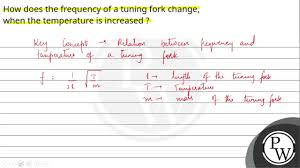 How does the frequency of a tuning fork change,
when the temperature is increased ?
Key Concept → Relation between frequency and
temperature of a tuning fork
f = 1/2l √T/m
l → length of the tuning fork
T → Temperature
m → mass of the tuning fork
P
W